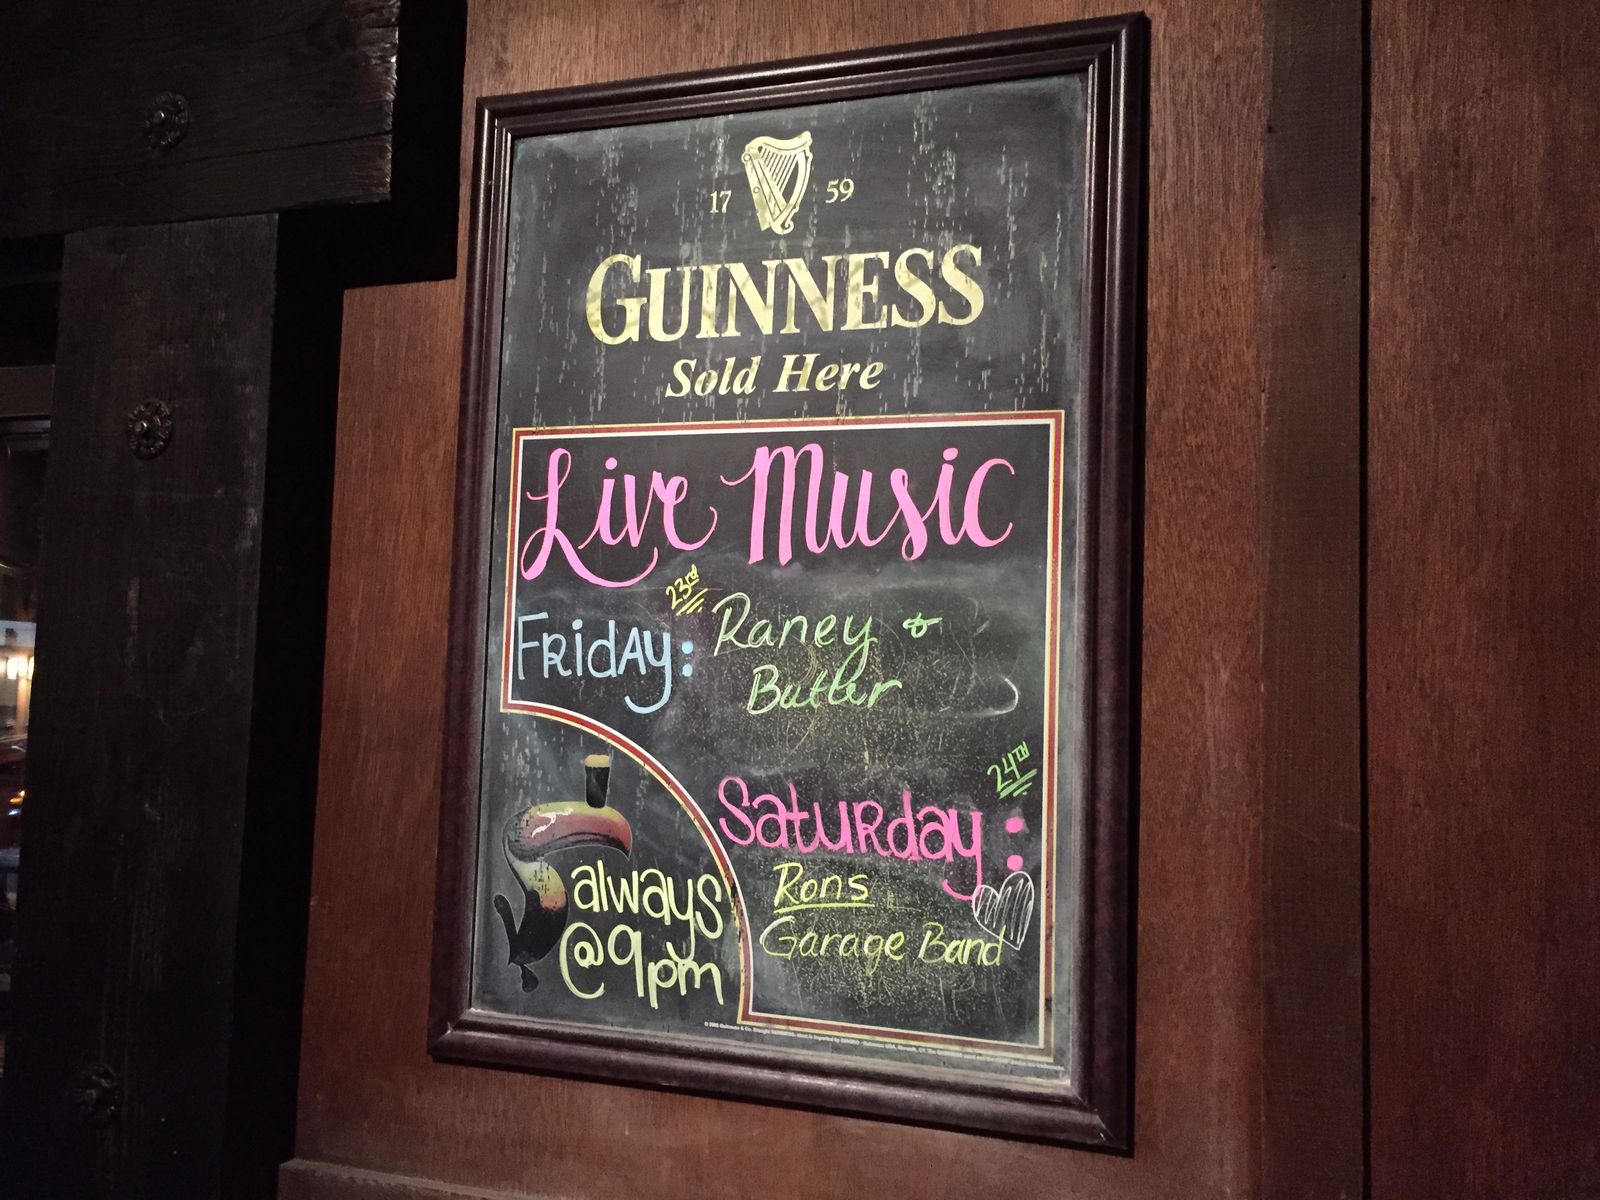 17 59
GUINNESS
Sold Here
Live Music
23rd
Friday: Raney &
Butter
24TH
Saturday:
Rons
Garage Band
always
@9pm